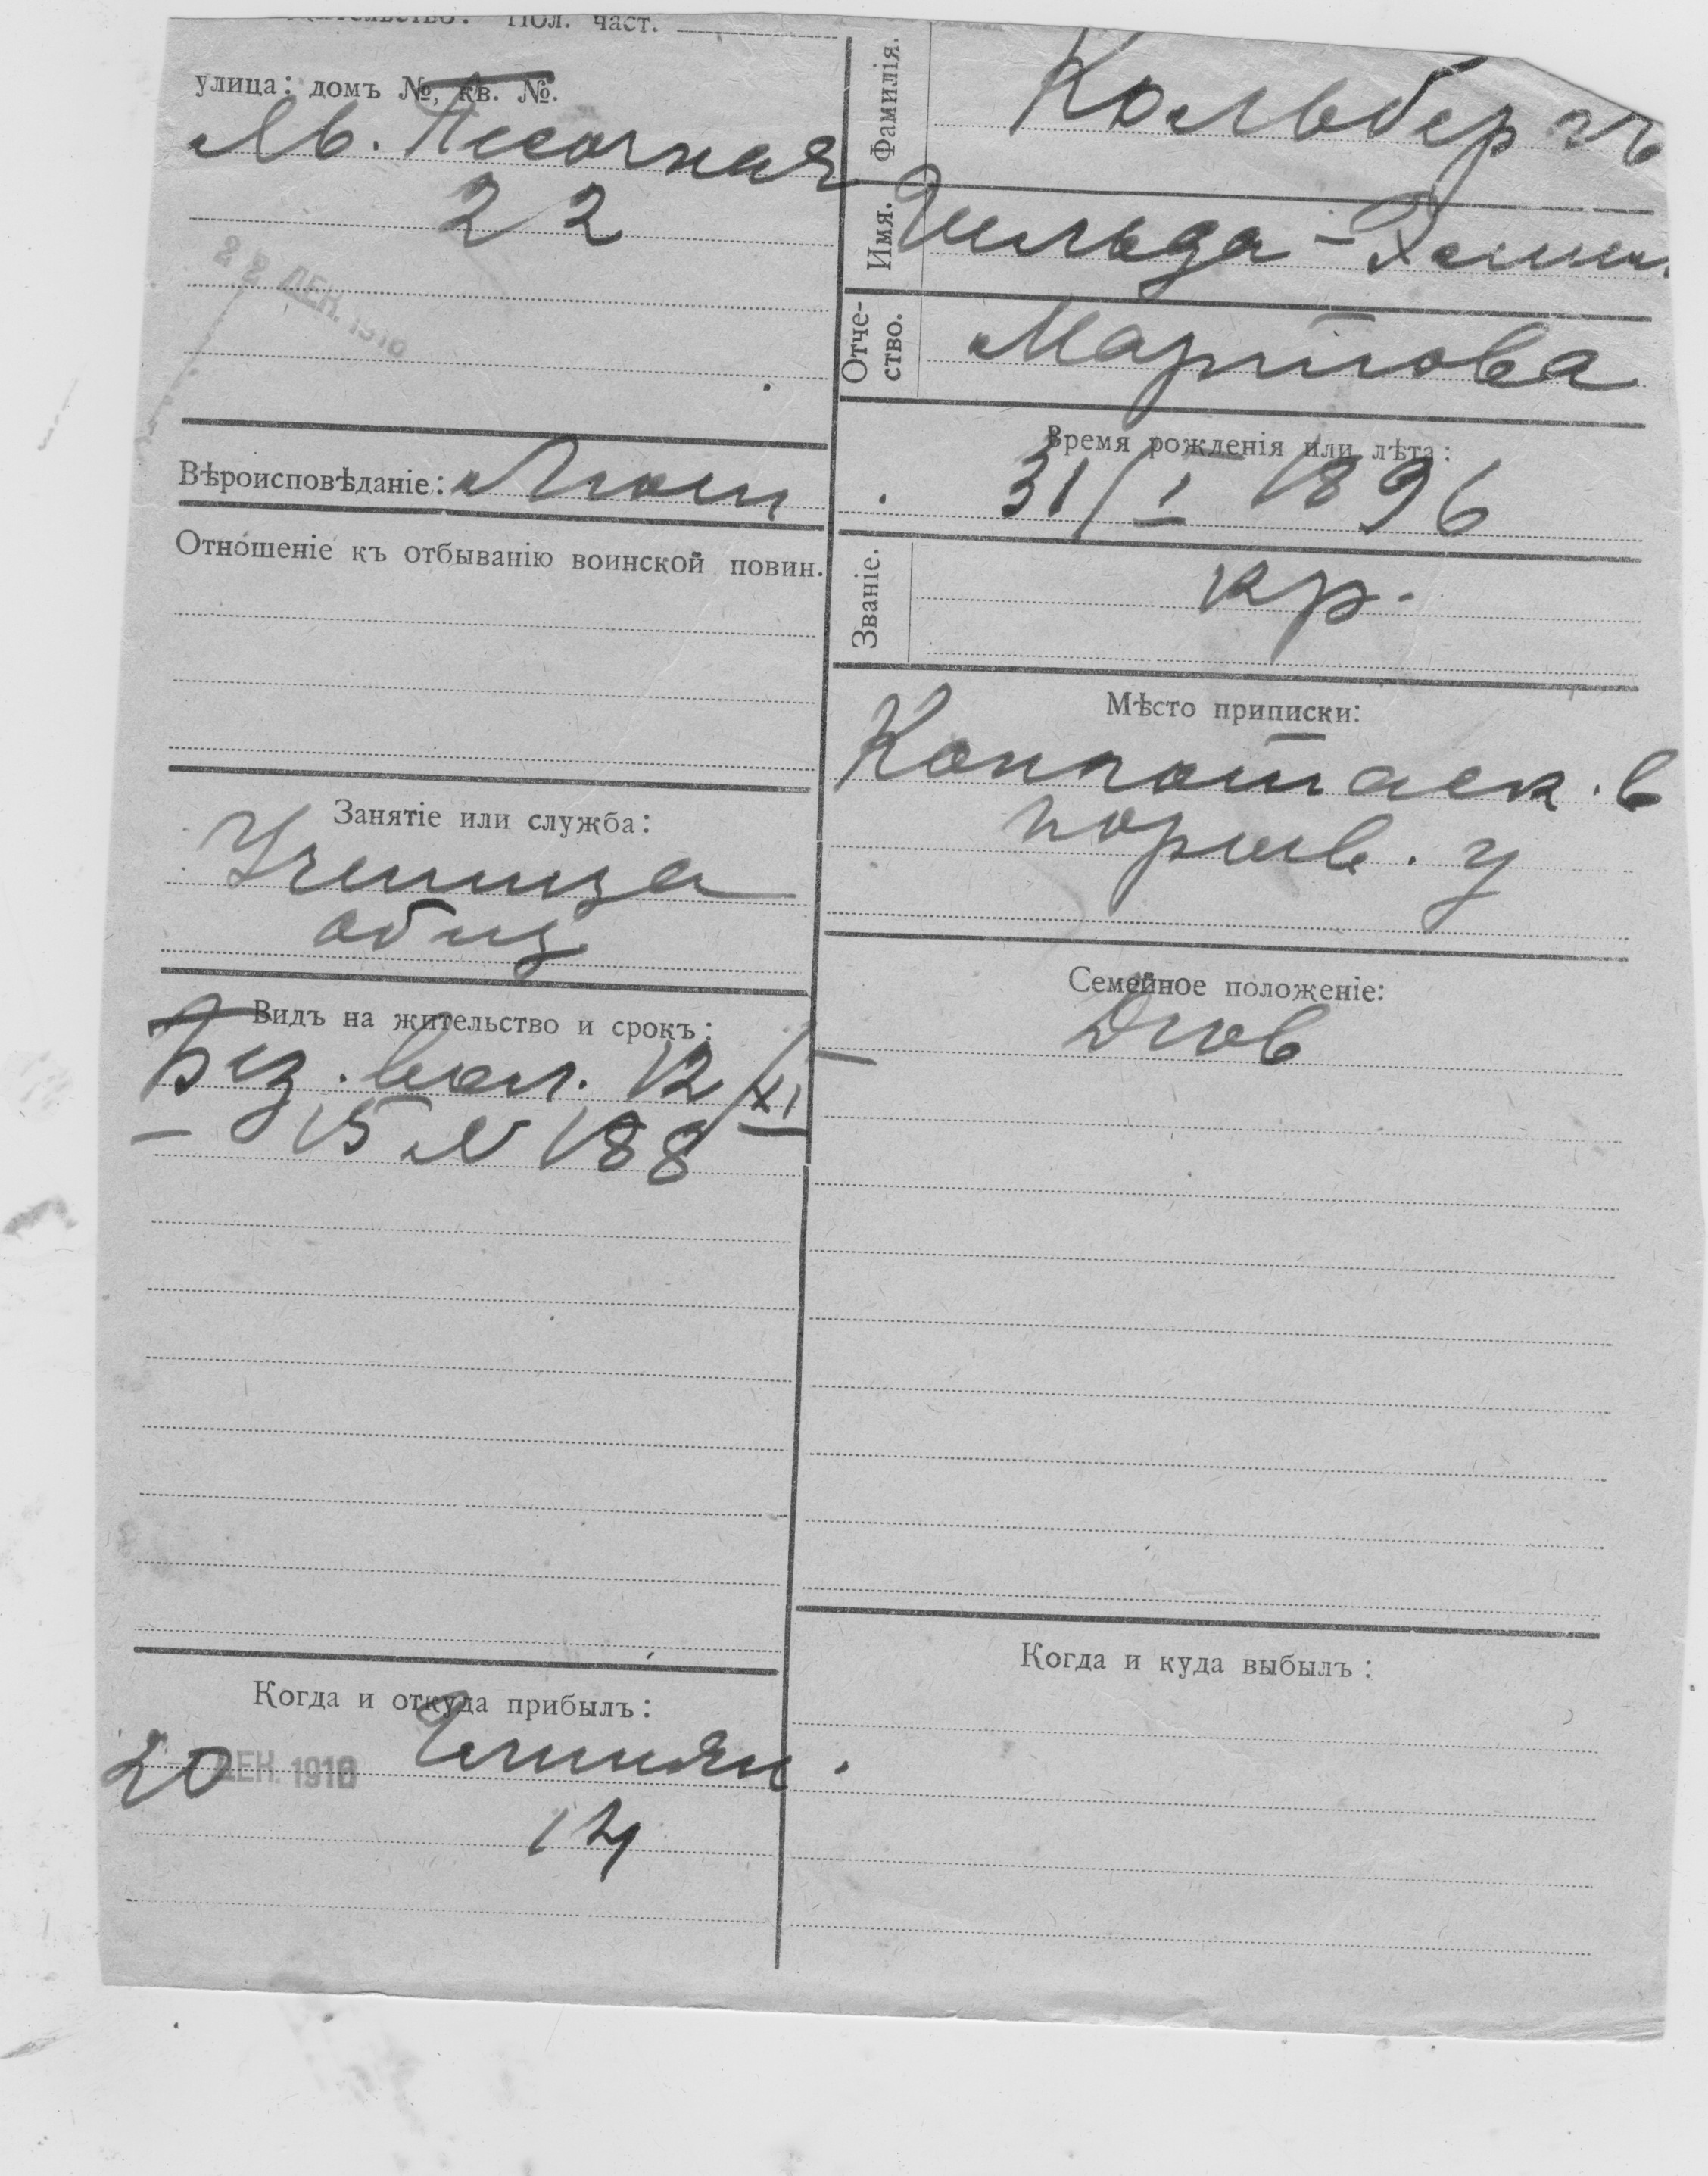 Пол. част.
улица: домъ №, кв. №.
Песочная
22
22 ДЕК. 1916
Вѣроисповѣданіе: Лют
Отношеніе къ отбыванію воинской повин.
Занятіе или служба:
Ученица
общ
Видъ на жительство и срокъ:
Без. вол. 12/XI
– 15 № 188
Когда и откуда прибылъ:
20 ДЕК. 1916
14
Фамилія. Кольбергъ
Имя. Гильда -
Отчество. Мартова
Время рожденія или лѣта:
31/I 1896
Званіе. кр.
Мѣсто приписки:
в
у
Семейное положеніе:
Дѣв
Когда и куда выбылъ: